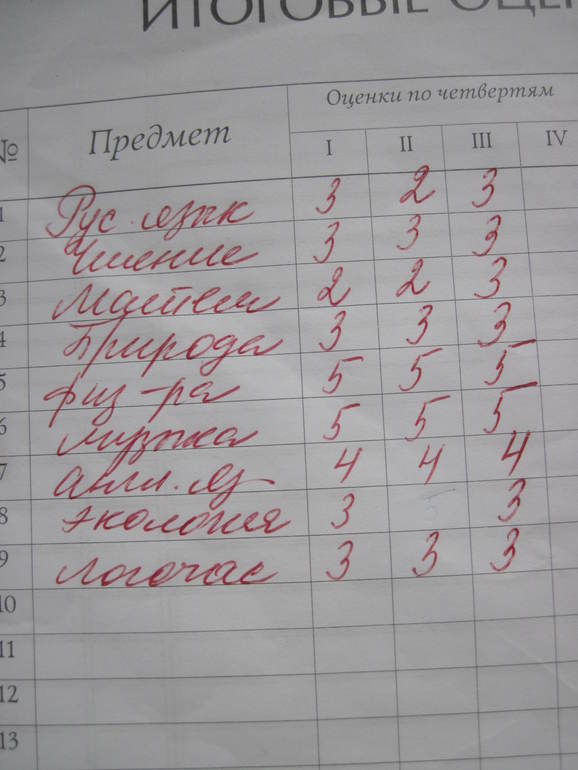 ИТОГОВЫЕ ОЦЕН
№ Предмет Оценки по четвертям
I II III IV
1 Рус. язык 3 2 3
2 Чтение 3 3 3
3 Матем 2 2 3
4 Природа 3 3 3
5 физ-ра 5 5 5
6 музыка 5 5 5
7 англ. яз 4 4 4
8 экология 3 5 3
9 логочас 3 3 3
10
11
12
13